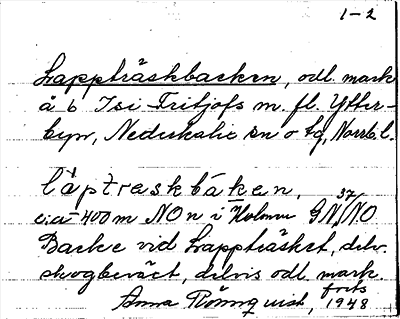 1-2
Lappträskbacken, odl. mark
å 6 Isi Fritjofs m. fl. Ytter-
byn, Nederkalix sn o tg, Norrb. l.
läptraskbäken,
c:a 400 m NO n i GN, 37 NO
Backe vid Lappträsket, delv.
skogbeväxt, delvis odl. mark.
forts
Anna Rönnquist, 1948